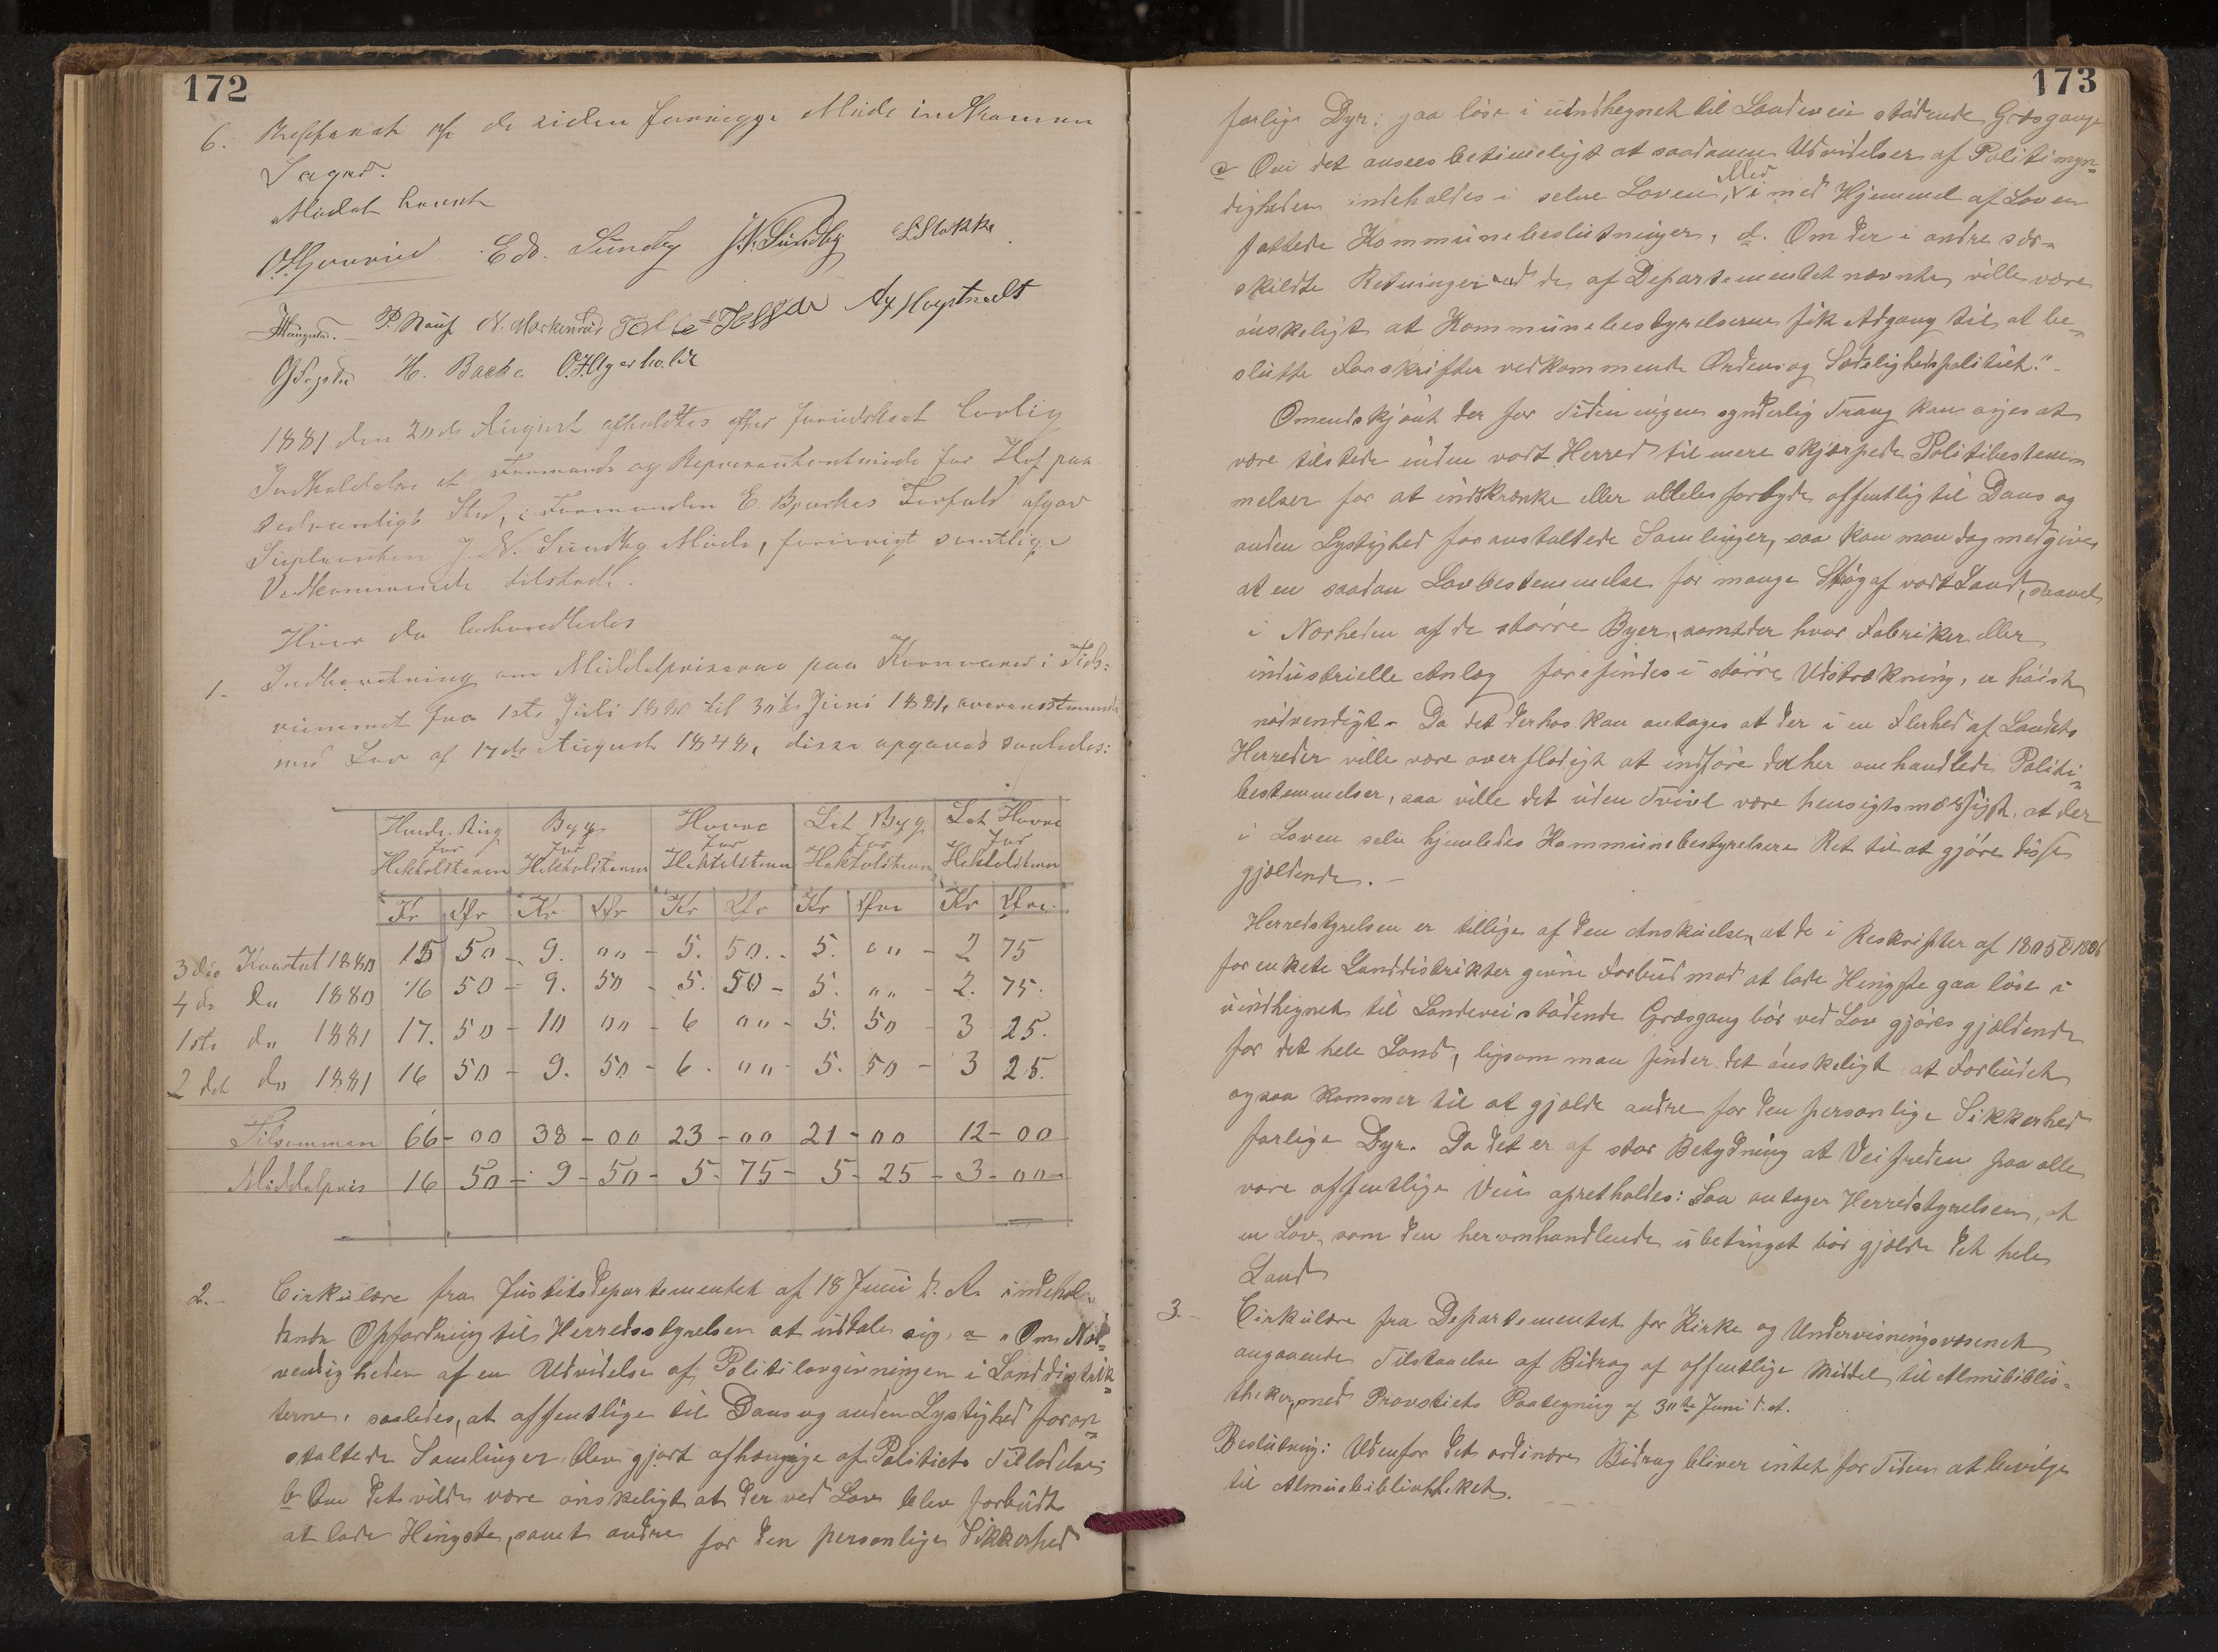 172
6. Referat af de siden forrige Møde indkomne
Sager.
Mødet hævet
Edv. Sundby J. N. Sundby L. Stokke
P. Hauf N. Markerud
H. Bache O. H. Agerholdt
1881 den 20de August afholdtes efter foriudskat lovlig
Indkaldelse et Formands og Repræsentantmøde for Hof paa
sedvanligt Sted, i Formanden E. Bjerkes Forfald afgav
Suplcanten J. N. Sundby Møde, foriøvrigt samtlige
Vedkommende tilstede.
Hvor da behandledes
1. Indberetning om Middelpriserne paa Kornvarer i Tids-
rummet fra 1ste Juli 1880 til 30te Juni 1881, overensstemmende
med Lov af 17de August 1848, disse opgaves saaledes:
Hunds. Rug Byg Havre Let Byg Let Havre
for for for for for
Hektoliteren Hektoliteren Hektoliteren Hektoliteren Hektoliteren
Kr Øre Kr Øre Kr Øre Kr Øre Kr Øre
3die Kvartal 1880 15 50 - 9. 00 - 5. 50 - 5. 00 - 2 75
4de do 1880 16 50 - 9. 50 - 5. 50 - 5. 00 - 2. 75.
1ste do 1881 17. 50 - 10 00 - 6 00 - 5. 50 - 3 25.
2det do 1881 16 50 - 9. 50 - 6. 00 - 5. 50 - 3 25.
Tilsamman 66 - 00 38 - 00 23 - 00 21 - 00 12 - 00
Middelpris 16 50 - 9 - 50 - 5 - 75 - 5 - 25 - 3 - 00
2. Cirkulære fra Justitsdepartementet af 18 Juni d. A. indehol-
dende Opfordring til Herredsstyrelsen at udtale sig, a „Om Nød-
vendigheden af en Udvidelse af Politilovgivningen i Landdistrik-
terne, saaledes, at offentlige til Dans og anden Lystighed foran-
staltede Samlinger blev gjort afhængige af Politiets Tilladelse;
b Om det vilde være ønskeligt at der ved Lov blev forbudt
at lade Hingste, samt andre for den personlige Sikkerhed
173
farlige Dyr; gaa løse i uindhegnet til Landevei stødende Græsgange
c Om det ansees betimeligt at saadanne Udvidelser af Politimyn-
digheden indeholdes i selve Loven, Med i med Hjemmel af Loven
fattede Kommunebeslutninger, d. Om der i andre sær-
skildte Retninger end de af Departementet nævnte, ville være
ønskeligt at Kommunebestyrelserne fik Adgang til at be-
slutte Forskrifter vedkommende Ordens og Sædelighedspolitiet."
Omendskjønt der for Tiden ingen synderlig Trang kan siges at
være tilstede inden vort Herred til mere skjærpede Politibestem-
melser for at indskrænke eller alleles forbyde offentlig til Dans og
anden Lystighed foranstaltede Samlinger, saa kan man dog medgives
at en saadan Lovbestemmelse for mange Strøg af vort Land, saavel
i Nærheden af de større Byer, samt der hvor Fabriker eller
industrielle Anlæg forefindes i større Udstrækning, er høist
nødvendigt. Da det derhos kan antages at der i en Flerhed af Landets
Herreder ville være overflødigt at indføre de her omhandlede Politi-
bestemmelser, saa ville det uden Tvivl være hensigtsmæssigt, at der
i Loven selv hjemledes Kommunebestyrelserne Ret til at gjøre disse
gjældende.
Herredstyrelsen er tillige af den Anskuelse, at de i Reskripter af 1805 & 1806
for enkete Landdistrikter givne Forbud mod at lade Hingste gaa løse i
uindhegnet til Landevei stødende Græsgang bør ved Lov gjøres gjældende
for det hele Land, ligsom man finder det ønskeligt at Forbudet
ogsaa kommer til at gjælde andre for den personlige Sikkerhed
farlige Dyr. Da det er af stor Betydning at Veifreden paa alle
vore offentlige Veie opretholdes: Saa antager Herredstyrelsen, at
en Lov, som den her omhandlende ubetinget bør gjælde det hele
Land
3. Cirkulære fra Departementet for Kirke og Undervisningsvæsenet
angaaende Tilstaaelse af Bidrag af offentlige Middel til Almuebiblio-
theker, med Provstiets Paategning af 30te Juni d. A.
Beslutning: Udenfor det ordinære Bidrag bliver intet for Tiden at bevilge
til Almuebibliotheket.